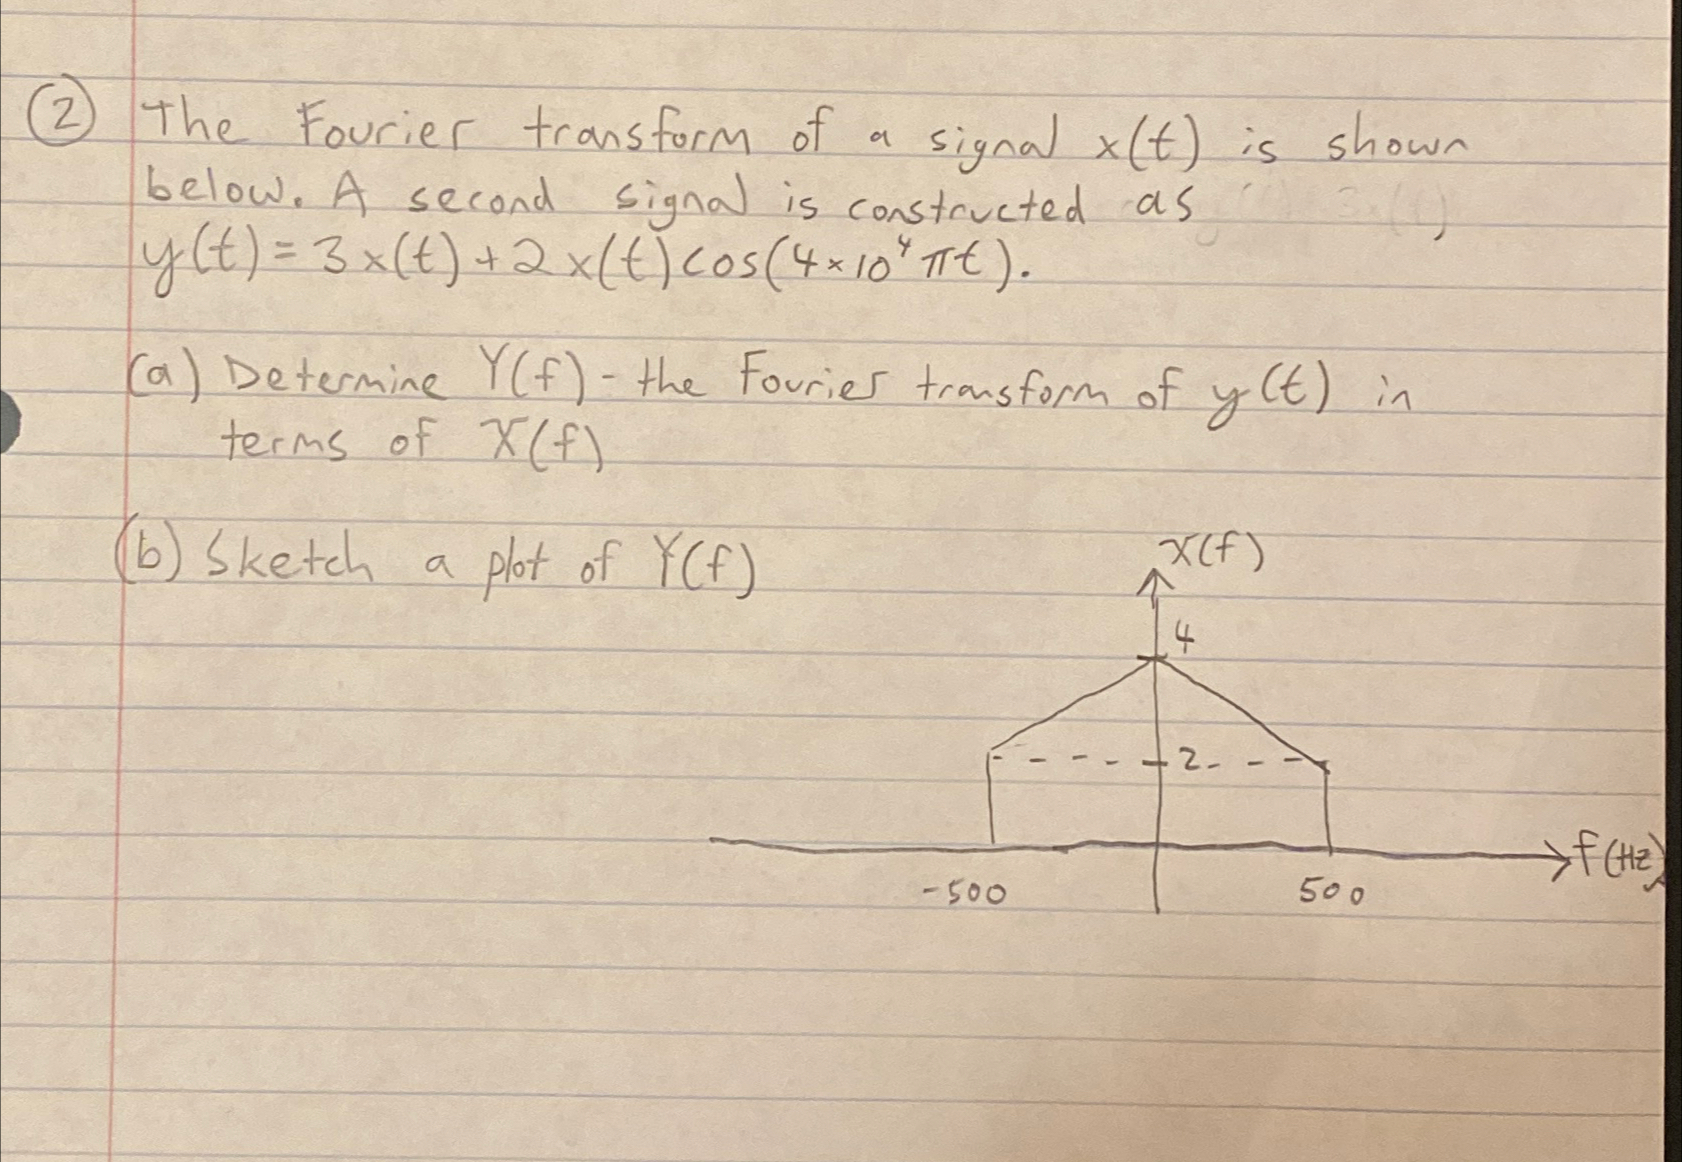 ② The Fourier transform of a signal x(t) is shown
below. A second signal is constructed as
y(t) = 3x(t) + 2x(t) cos(4×10⁴πt).
(a) Determine Y(f) - the Fourier transform of y(t) in
terms of X(f)
(b) Sketch a plot of Y(f)
X(f)
4
2
f(Hz)
-500
500